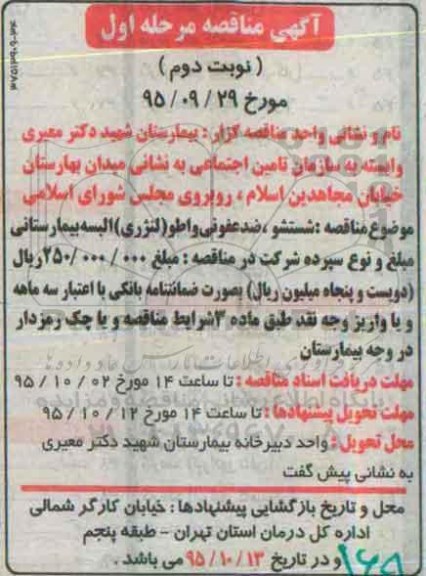 آگهی مناقصه مرحله اول
( نوبت دوم )
مورخ ۲۹ / ۰۹ / ۹۵
نام و نشانی واحد مناقصه گزار : بیمارستان شهید دکتر معیری
وابسته به سازمان تامین اجتماعی به نشانی میدان بهارستان
خیابان مجاهدین اسلام ، روبروی مجلس شورای اسلامی
موضوع مناقصه :شستشو ،ضدعفونی واطو(لنژری)البسه بیمارستانی
مبلغ و نوع سپرده شرکت در مناقصه : مبلغ ۲۵۰/۰۰۰/۰۰۰ ریال
(دویست و پنجاه میلیون ریال) بصورت ضمانتنامه بانکی با اعتبار سه ماهه
و یا واریز وجه نقد طبق ماده ۳شرایط مناقصه و یا چک رمزدار
در وجه بیمارستان
مهلت دریافت اسناد مناقصه : تا ساعت ۱۴ مورخ ۰۲ / ۱۰ / ۹۵
مهلت تحویل پیشنهادها : تا ساعت ۱۴ مورخ ۱۲ / ۱۰ / ۹۵
محل تحویل : واحد دبیرخانه بیمارستان شهید دکتر معیری
به نشانی پیش گفت
محل و تاریخ بازگشایی پیشنهادها : خیابان کارگر شمالی
اداره کل درمان استان تهران - طبقه پنجم
و در تاریخ ۱۳ /۱۰ /۹۵ می باشد .